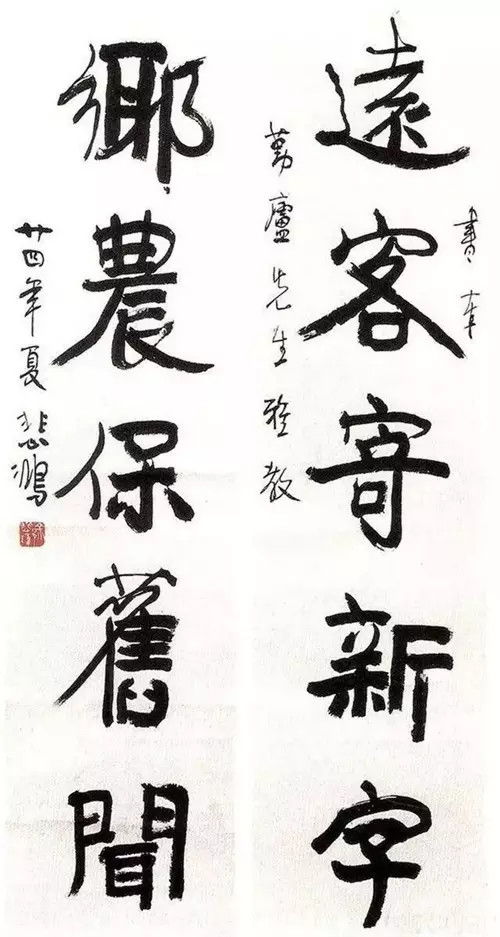 遠客寄新字
書奉
勤廬先生雅教
鄉農保舊聞
廿四年夏 悲鴻